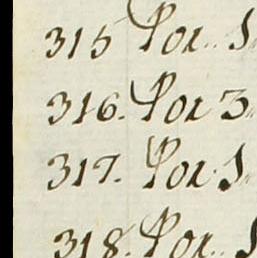 315 Por. 1
316. Por 3
317. Por. 1
318. Por. 1